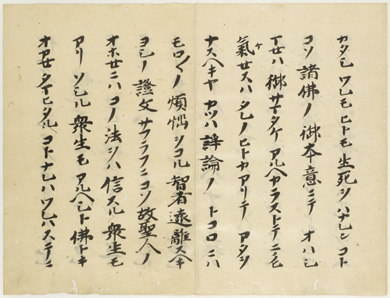 カタシワレモヒトモ生死ヲハナレンコト
コソ諸佛ノ御本意ニテオハシ
マセハ御サマタケアルヘカラストテニクヒ
氣セスハタレノヒトカアリテアタヲ
ナスヘキヤカツハ諍論ノトコロニハ
モロ〱ノ煩惱ヲコル智者遠離スヘキ
ヨシノ證文サフラフニコソ故聖人ノ
オホセニハコノ法ヲハ信スル衆生モ
アリソシル衆生モアルヘシト佛トキ
オカセタマヒタルコトナレハワレハステニ